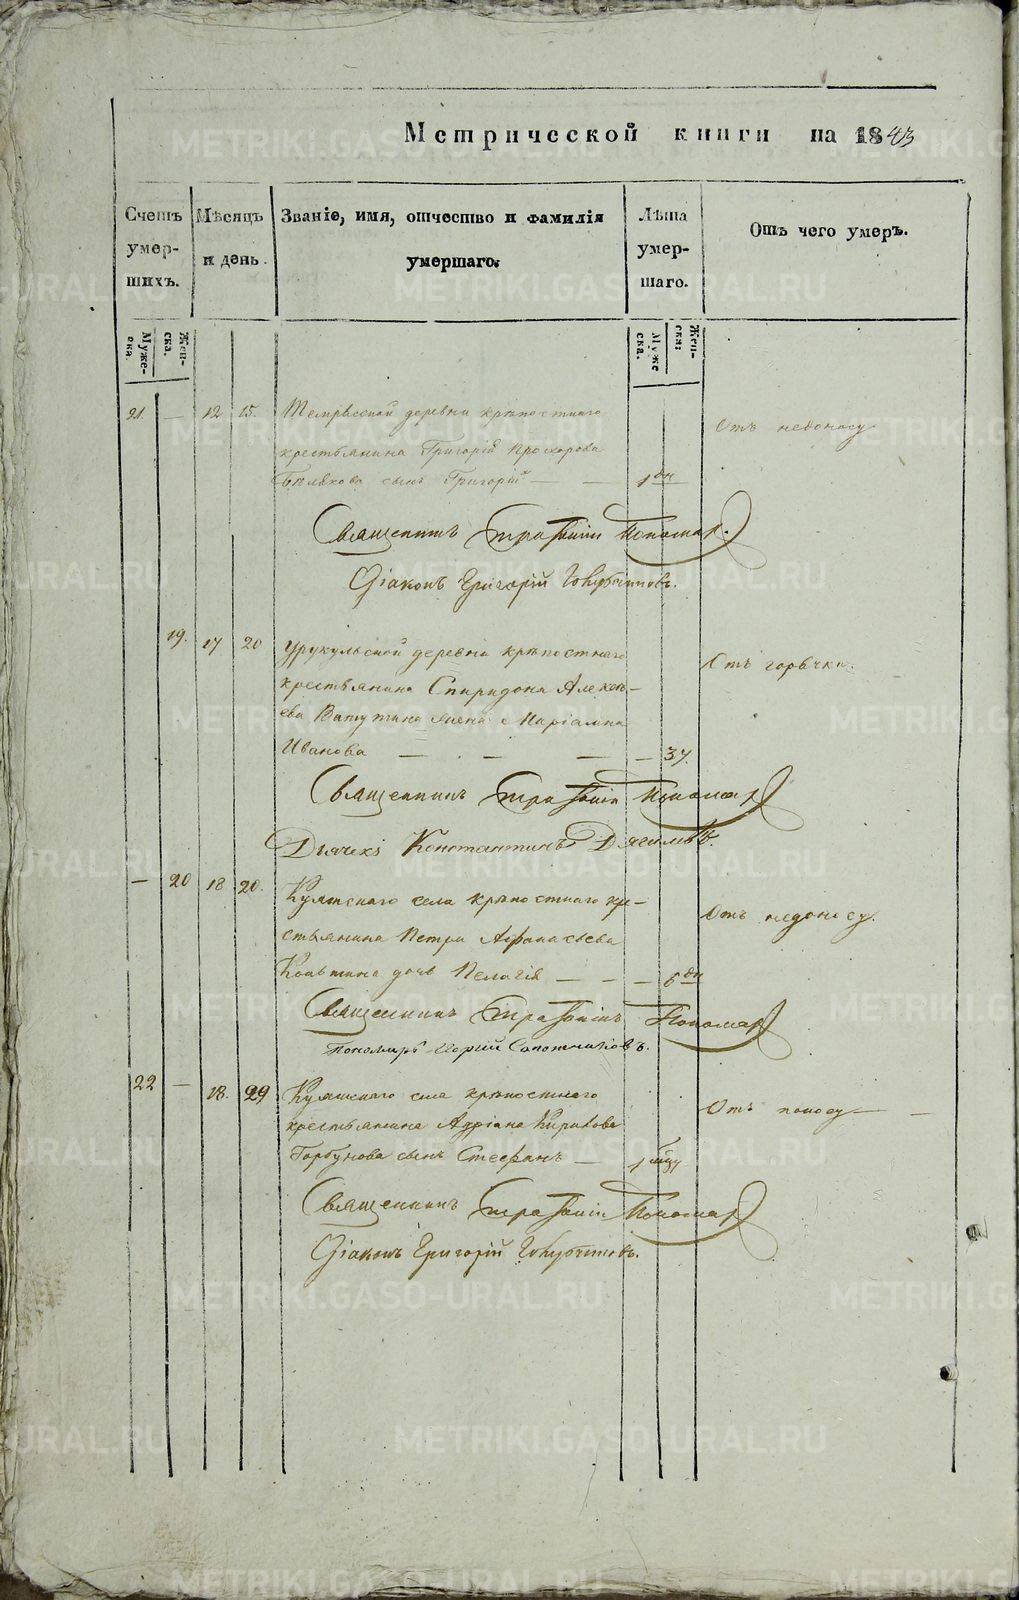 Метрической книги на 1843
Счетъ умер- шихъ.
Мѣсяцъ и день.
Званіе, имя, отчество и фамилія умершаго.
Лѣта умер- шаго.
Отъ чего умеръ.
Муже- ска.
Жен- ска.
Муже ска.
Жен- ска:
21. — 12 15. деревни крѣпостнаго
крестьянина Григорія Прохорова
сынъ Григорій — — 1 дн
Отъ недоносу
Священникъ Пономар
Діаконъ Григорій
19. 17 20 Урукульской деревни крѣпостнаго
крестьянина Спиридона Алексѣ-
ева Ватутина жена Маріамна
Иванова — — — — 37.
Отъ горячки.
Священникъ Пономар
Дьячекъ Константинъ
— 20 18 20. села крѣпостнаго кре-
стьянина Петра Афанасьева
Копытина дочь Пелагія — — — 6 дн
Отъ недоносу.
Священникъ Пономар
Пономарь Сапожниковъ.
22 — 18. 29 села крѣпостнаго
крестьянина Адріана Кирилова
Горбунова сынъ Стефанъ — 1 мцъ
Отъ поносу — —
Священникъ Пономар
Діаконъ Григорій
METRIKI.GASO-URAL.RU